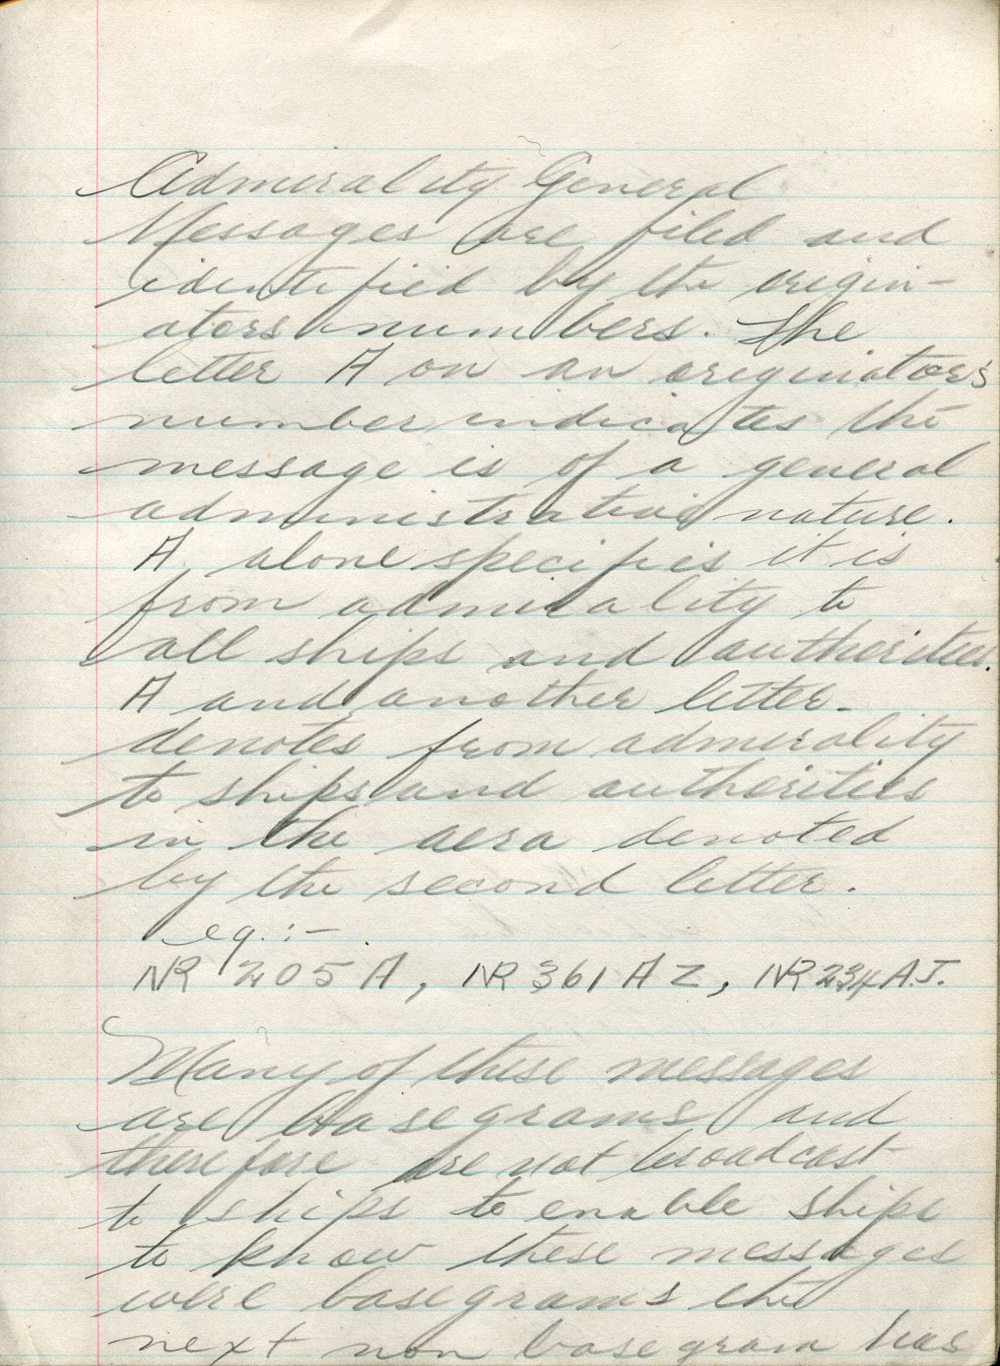 Admirality General
Messages are filed and
identified by the origin-
ators numbers. The
letter A on an originators
number indicates the
message is of a general
administrative nature.
A alone specifies it is
from admirality to
all ships and authorities.
A and another letter
denotes from admirality
to ships and authorities
in the aera denoted
by the second letter.
eg.:-
NR 205 A, NR 361 A Z, NR 234 A.J.
Many of these messages
are basegrams and
therefore are not broadcast
to ships to enable ships
to know these messages
were basegrams the
next non basegram has